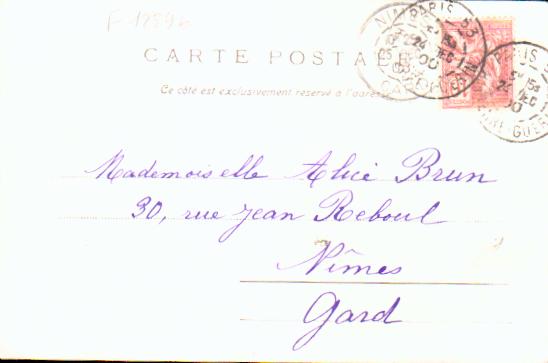 F-12896
CARTE POSTALE
Ce côté est exclusivement réservé à l'adresse
PARIS 53
24 DEC
00
PARIS
Mademoiselle Alice Brun
30, rue Jean Reboul
Nîmes
Gard